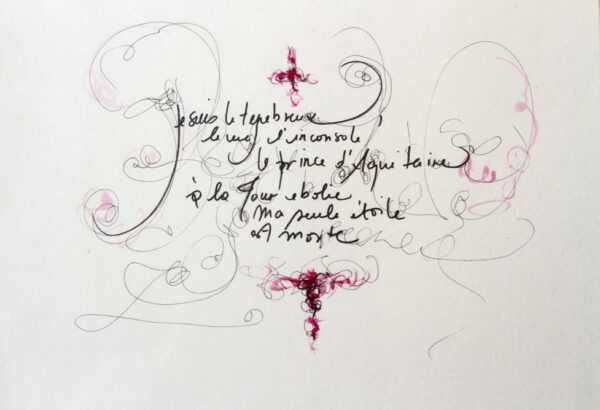 Je suis le tenebreux
le veuf l'inconsolé
le prince d'Aquitaine
à la Tour abolie
Ma seule étoile
est morte